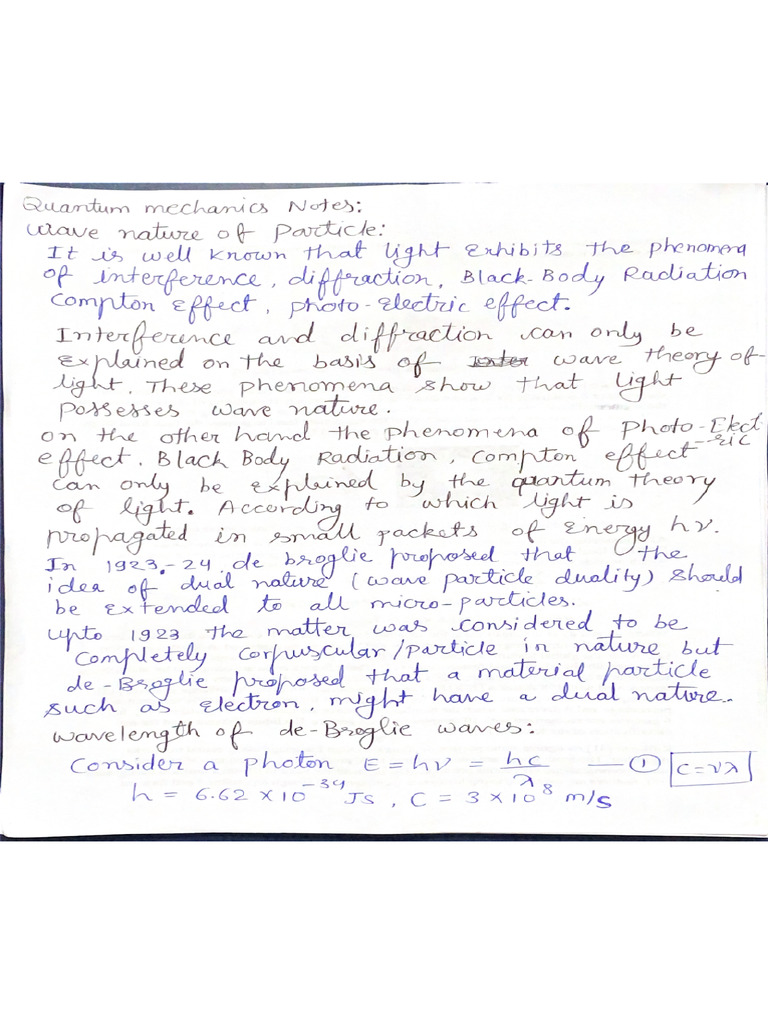 Quantum mechanics Notes:
wave nature of Particle:
It is well known that light exhibits the phenomena
of interference, diffraction, Black-Body Radiation
Compton Effect, photo-Electric effect.
Interference and diffraction can only be
Explained on the basis of wave theory of
light. These phenomena show that light
possesses wave nature.
on the other hand the phenomena of photo-Elect
-ric
effect, Black Body Radiation, Compton effect
can only be explained by the quantum theory
of light. According to which light is
propagated in small packets of Energy hν.
In 1923-24, de broglie proposed that the
idea of dual nature (wave particle duality) should
be extended to all micro-particles.
upto 1923 the matter was considered to be
completely corpuscular/particle in nature but
de-Broglie proposed that a material particle
such as electron, might have a dual nature.
wavelength of de-Broglie waves:
Consider a photon E = hν = hc/λ — ① C = νλ
h = 6.62 × 10⁻³⁴ Js, C = 3 × 10⁸ m/s